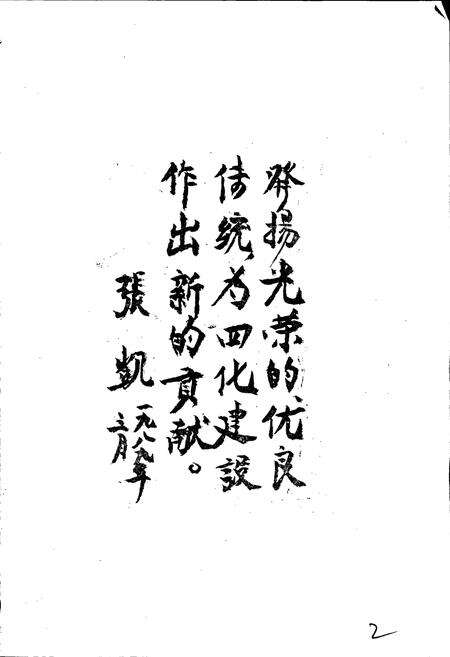 發揚光荣的优良
传统为四化建設
作出新的貢献。
張凱
一九八九年
三月
2